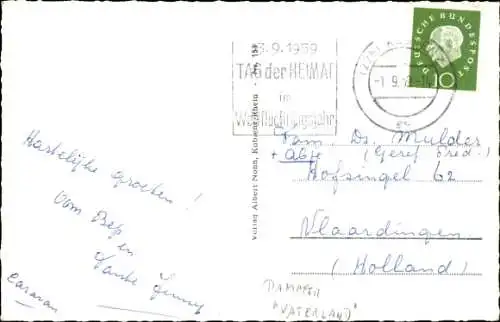 3.9.1959
TAG der HEIMAT
im
Weltflüchtlingsjahr
-1.9.
DEUTSCHE BUNDESPOST
10
Fam. Ds. Mulder
+ Abje (Geref Pred.)
Hofsingel 62
Vlaardingen
(Holland)
Hartelijke groeten!
Oom Bep
en
Tante Jenny
Caravan
Verlag Albert Nohn, Koblenz/Rhein - Nr. 159
DAMPFER
"VATERLAND"